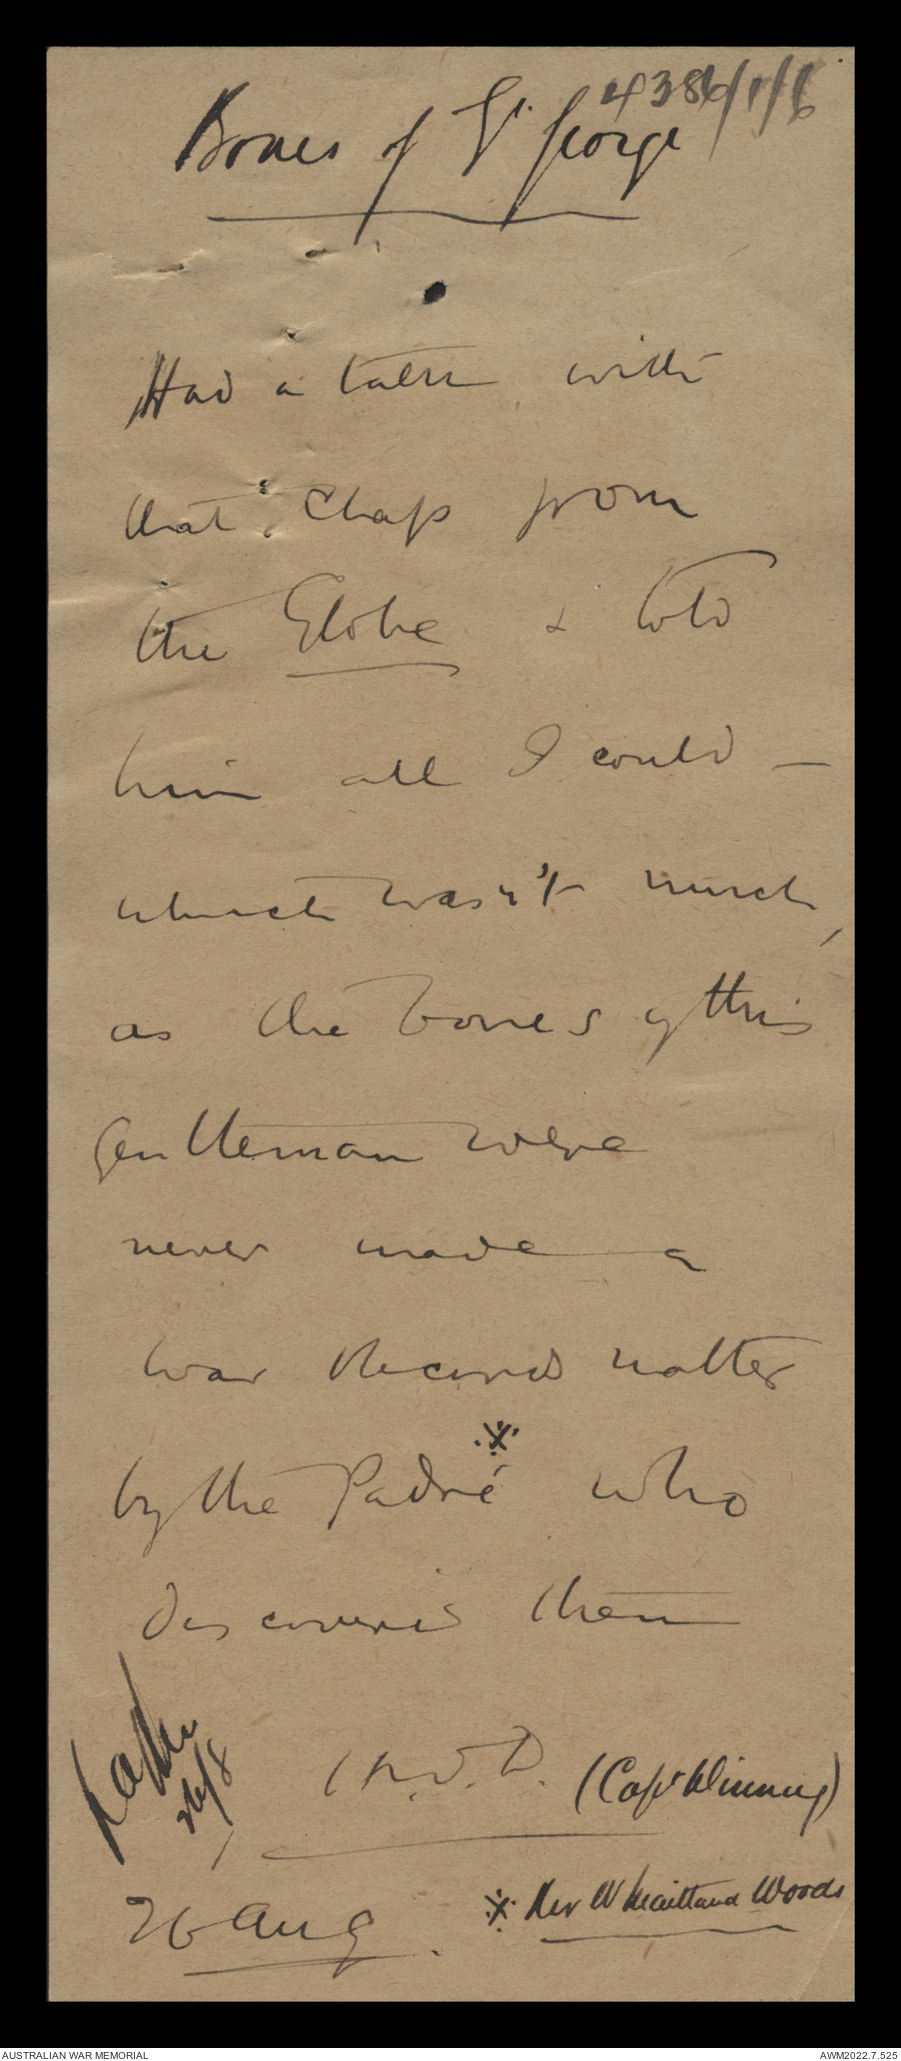 4386/1/6
Bones of St. George
Had a talk with
that chap from
the Globe & told
him all I could —
which wasn't much,
as the bones of this
gentleman were
never made a
War Records matter
by the Padré ※ who
discovered them
26/8
(Capt Dinning)
26 Aug.
※ Rev W Maitland Woods
AUSTRALIAN WAR MEMORIAL
AWM2022.7.525